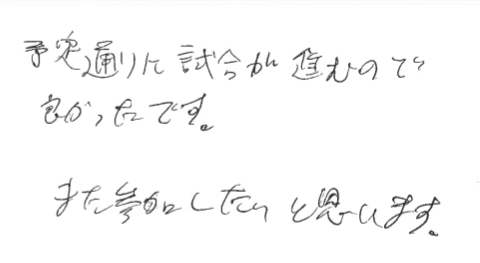 予定通りに試合が進むので
良かったです。
また参加したいと思います。